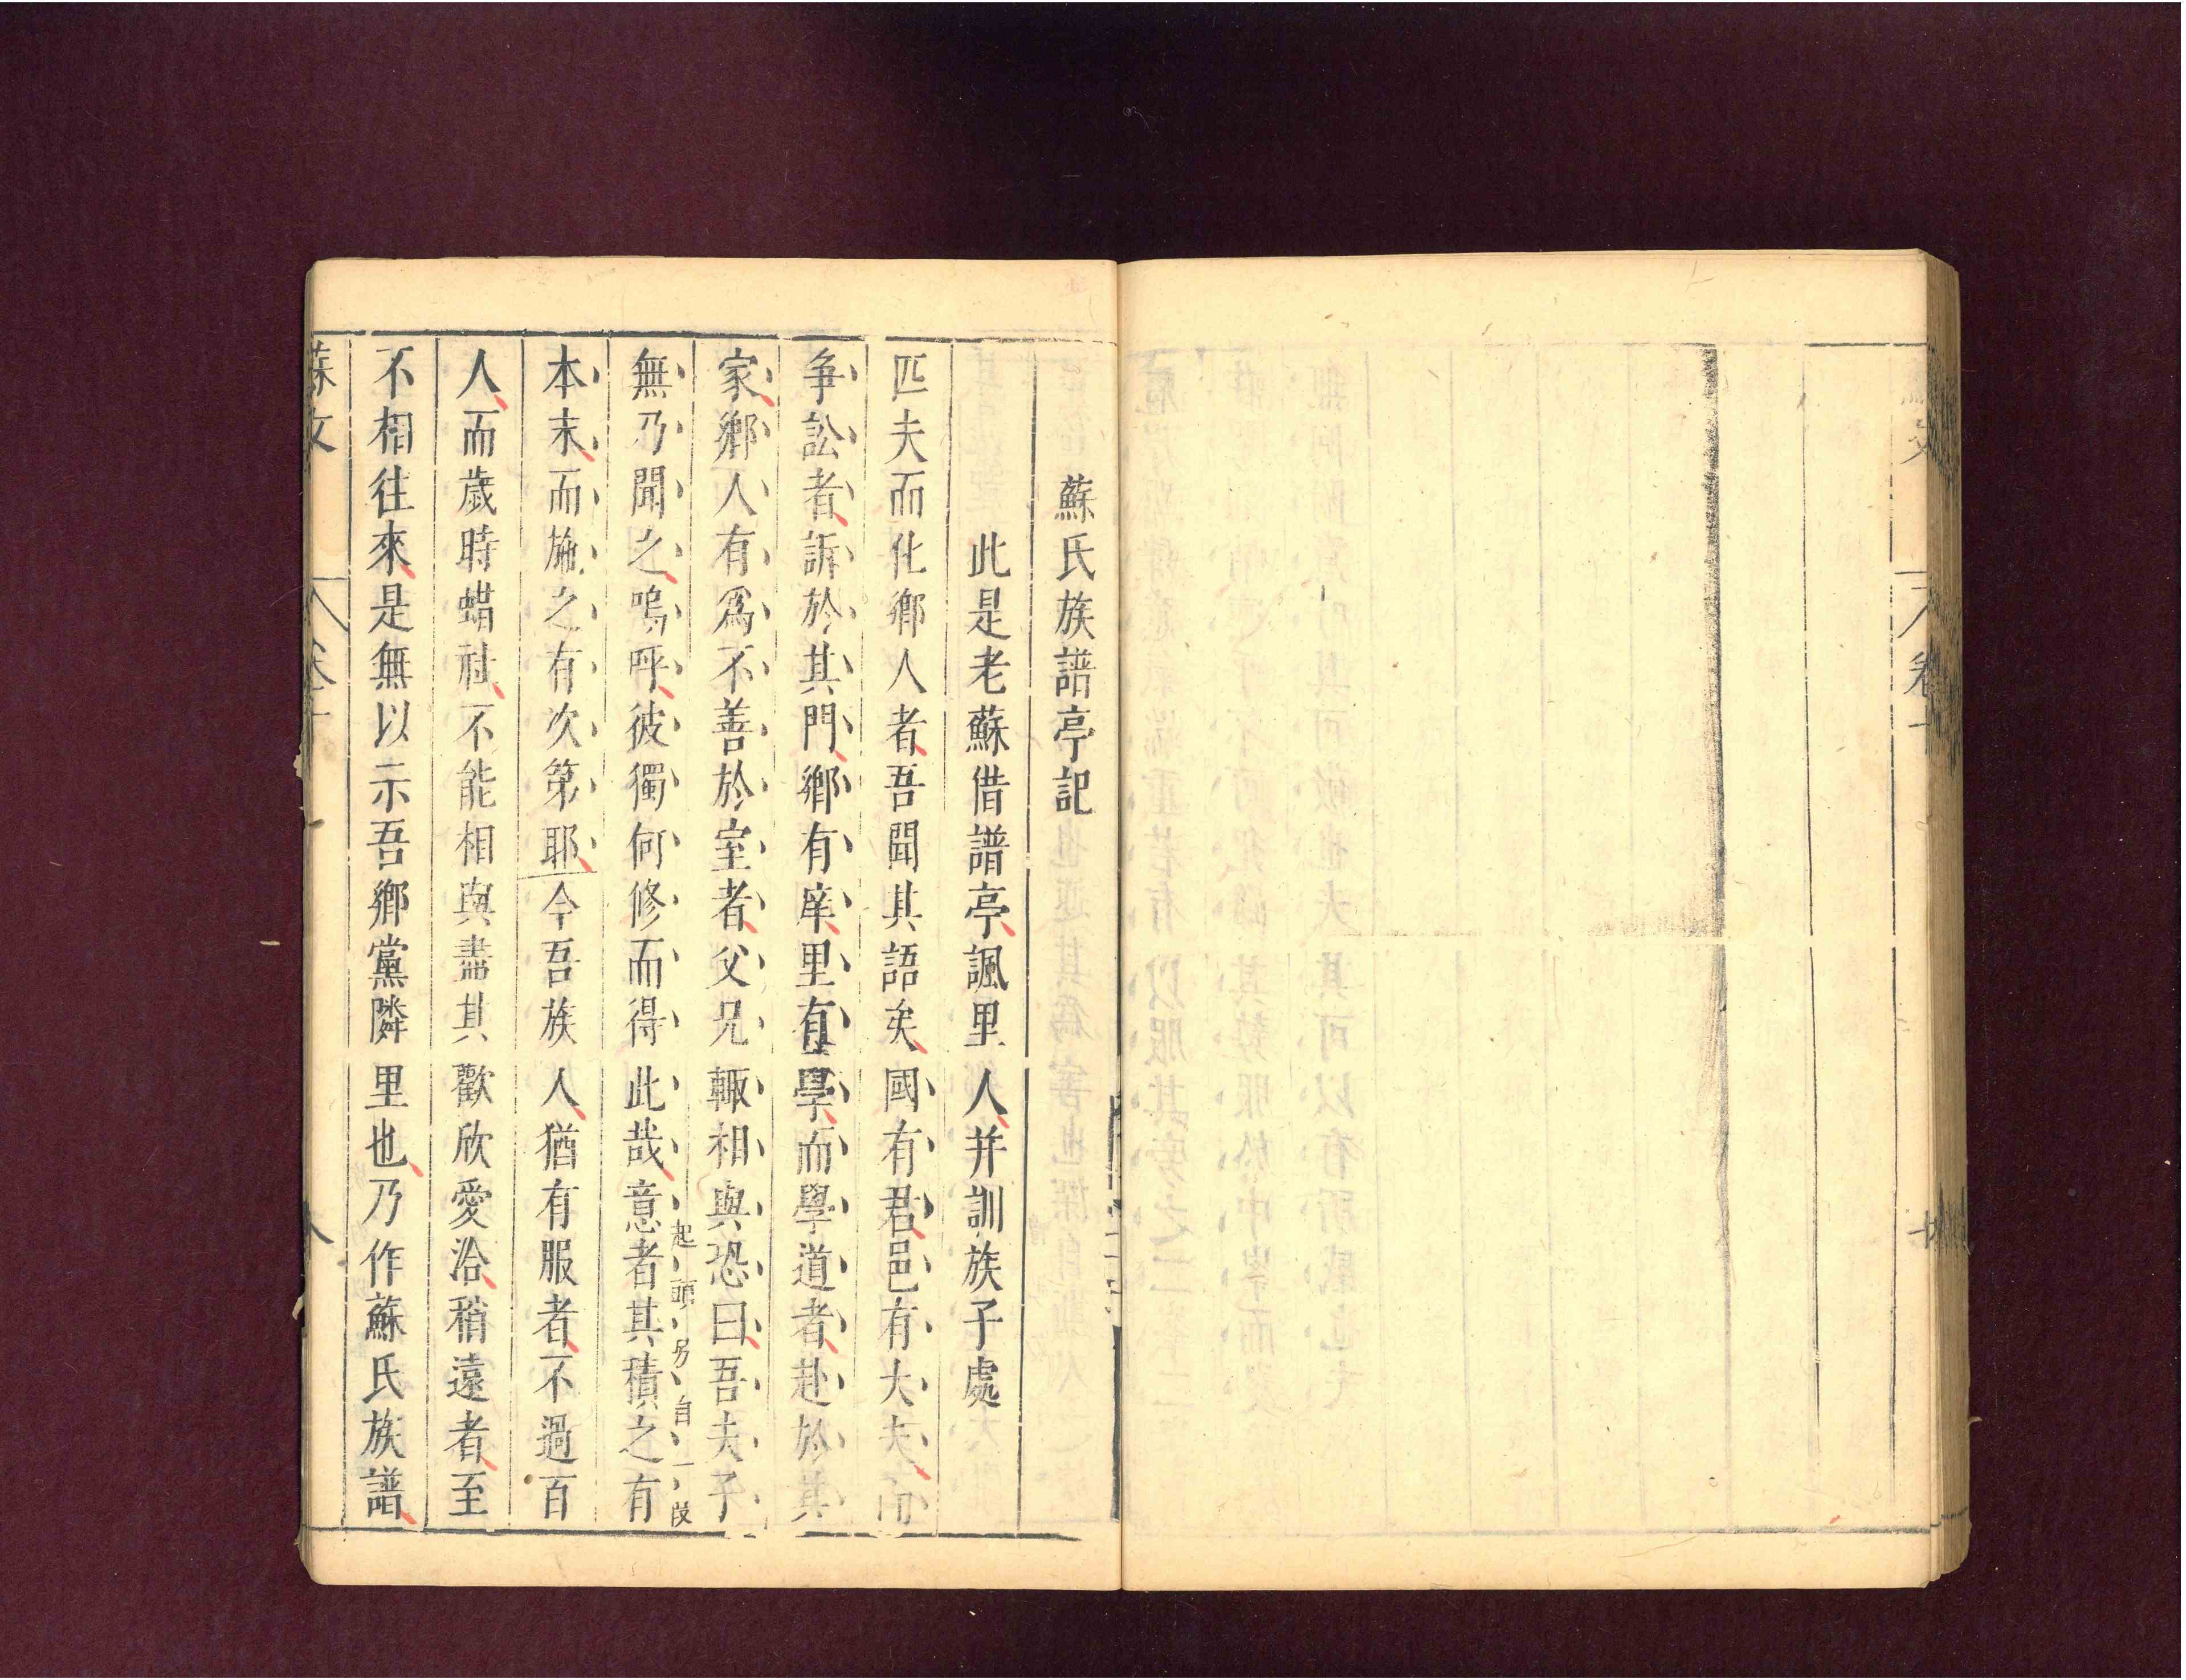 蘇氏族譜亭記
此是老蘇借譜亭諷里人并訓族子處
匹夫而化鄉人者吾聞其語矣國有君邑有大夫而
爭訟者訴於其門鄉有庠里有學而學道者赴於其
家鄉人有爲不善於室者父兄輙相與恐曰吾夫子
無乃聞之嗚呼彼獨何修而得此哉意者其積之有
起頭另自一段
本末而施之有次第耶今吾族人猶有服者不過百
人而歲時蜡社不能相與盡其歡欣愛洽稍遠者至
不相往來是無以示吾鄉黨隣里也乃作蘇氏族譜
蘇文
卷十